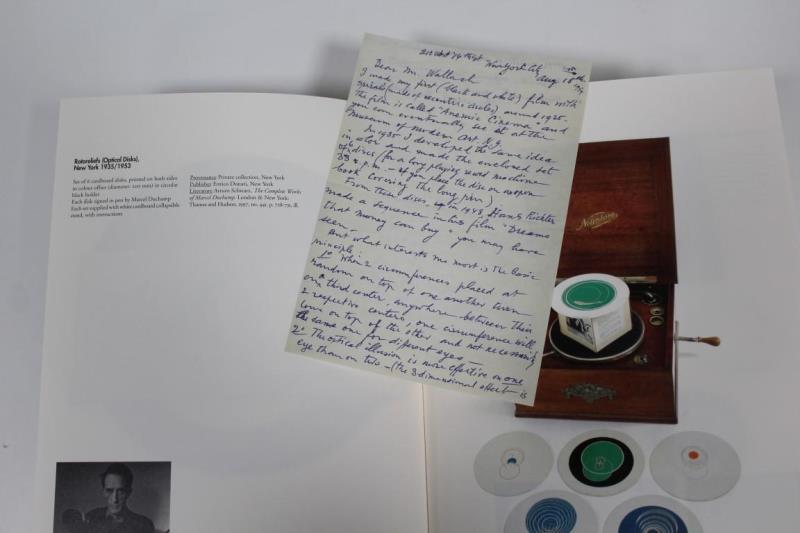 Rotoreliefs (Optical Disks),
New York 1935/1953
Set of 6 cardboard disks, printed on both sides
in colour offset (diameter: 200 mm) in circular
black holder
Each disk signed in pen by Marcel Duchamp
Each set supplied with white cardboard collapsible
stand, with instructions
Provenance: Private collection, New York
Publisher: Enrico Donati, New York
Literature: Arturo Schwarz, The Complete Works
of Marcel Duchamp. London & New York:
Thames and Hudson, 1997, no. 441, p. 728–
West
New York City
Aug 18th
Dear Mr. Wallach
I made my first (black and white) film with
spirals (made of eccentric circles) around 1925.
The film is called "Anemic Cinema" and
you can eventually see it at the
Museum of Modern Art N.Y.
In 1935 I developed the same idea
in color and made the enclosed set
of discs (for a long playing record machine
33 r.p.m. — if you put the disc on an open
book covering the long pin)
From these discs, in 1948, Hans Richter
made a sequence in his film "Dreams
that money can buy" you may have
seen —
But what interests me most is the basic
principle:
1° When 2 circumferences placed at
random on top of one another turn
on a third center, anywhere between their
2 respective centers, one circumference will
come on top of the other and not necessarily
the same one for different eyes —
2° The optical illusion is more effective on one
eye than on two — (the 3 dimensional effect is